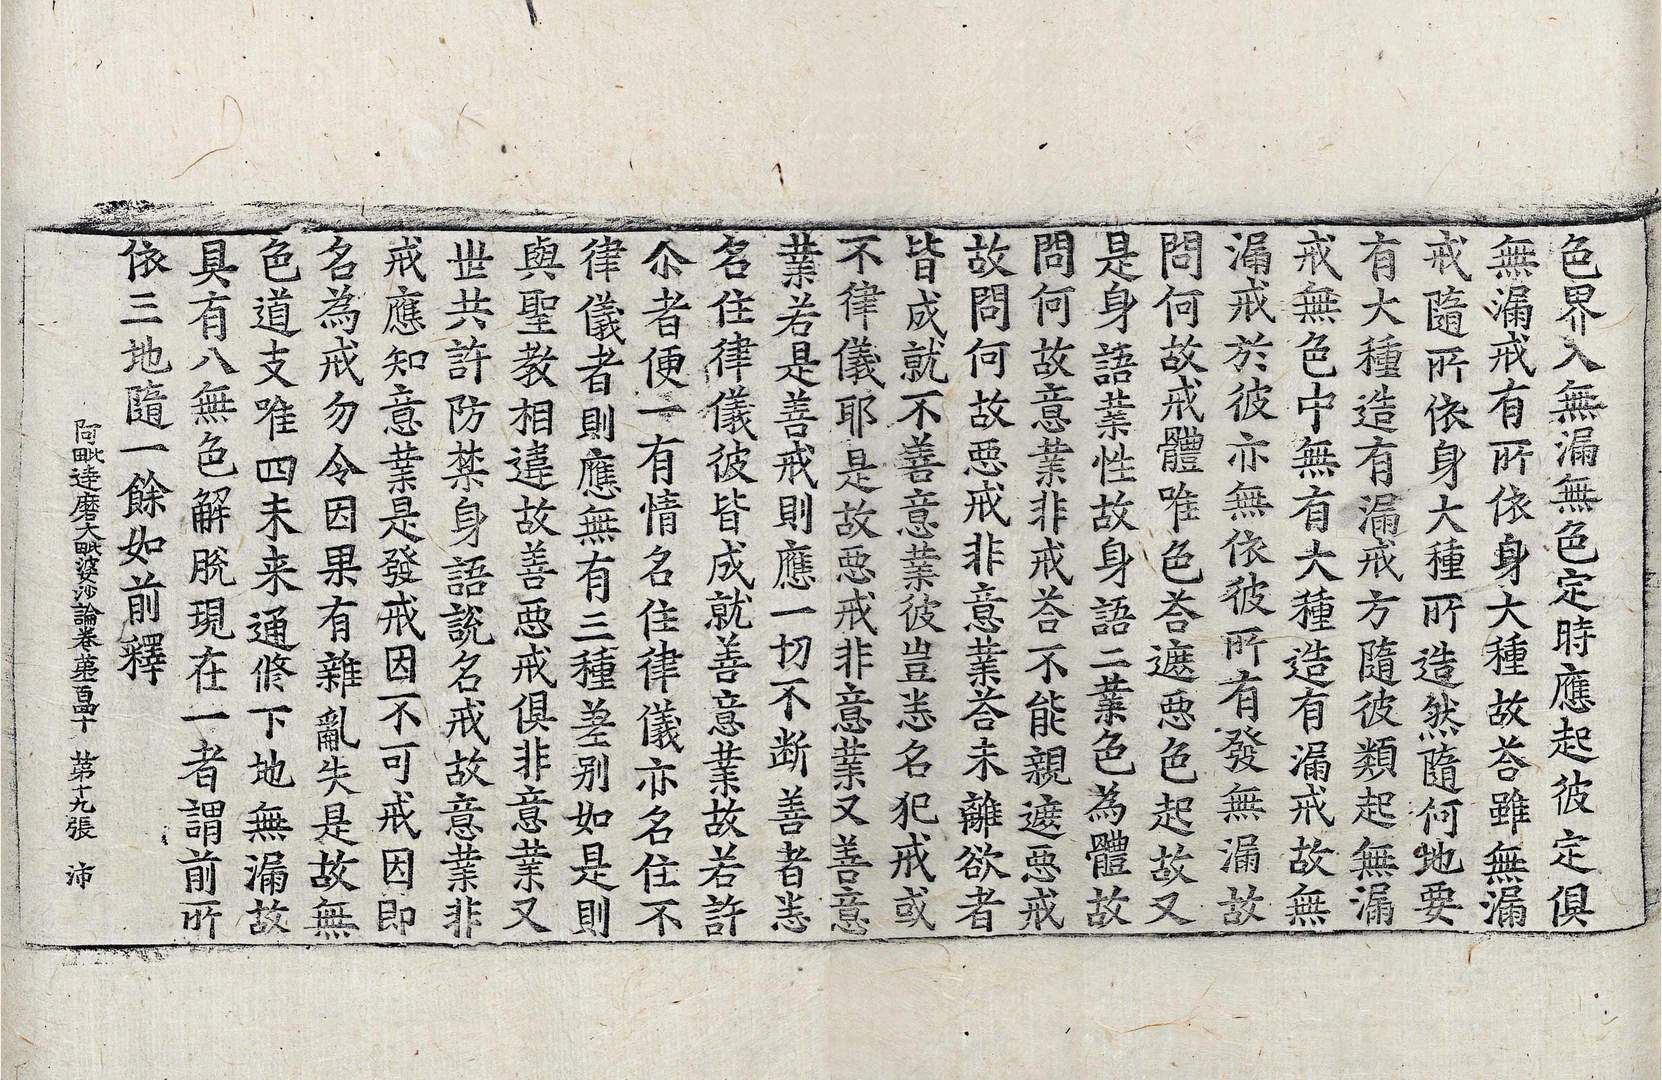 色界入無漏無色定時應起彼定俱
無漏戒有所依身大種故荅雖無漏
戒隨所依身大種所造然隨何地要
有大種造有漏戒方隨彼類起無漏
戒無色中無有大種造有漏戒故無
漏戒於彼亦無依彼所有發無漏故
問何故戒體唯色荅遮惡色起故又
是身語業性故身語二業色為體故
問何故意業非戒荅不能親遮惡戒
故問何故惡戒非意業荅未離欲者
皆成就不善意業彼豈恙名犯戒或
不律儀耶是故惡戒非意業又善意
業若是善戒則應一切不断善者恙
名住律儀彼皆成就善意業故若許
尒者便一有情名住律儀亦名住不
律儀者則應無有三種差别如是則
與聖教相違故善惡戒俱非意業又
世共許防禁身語說名戒故意業非
戒應知意業是發戒因不可戒因即
名為戒勿令因果有雜亂失是故無
色道支唯四未来通修下地無漏故
具有八無色解脫現在一者謂前所
依三地隨一餘如前釋
阿毗達磨大毗婆沙論卷苐百四十　苐十九張　沛